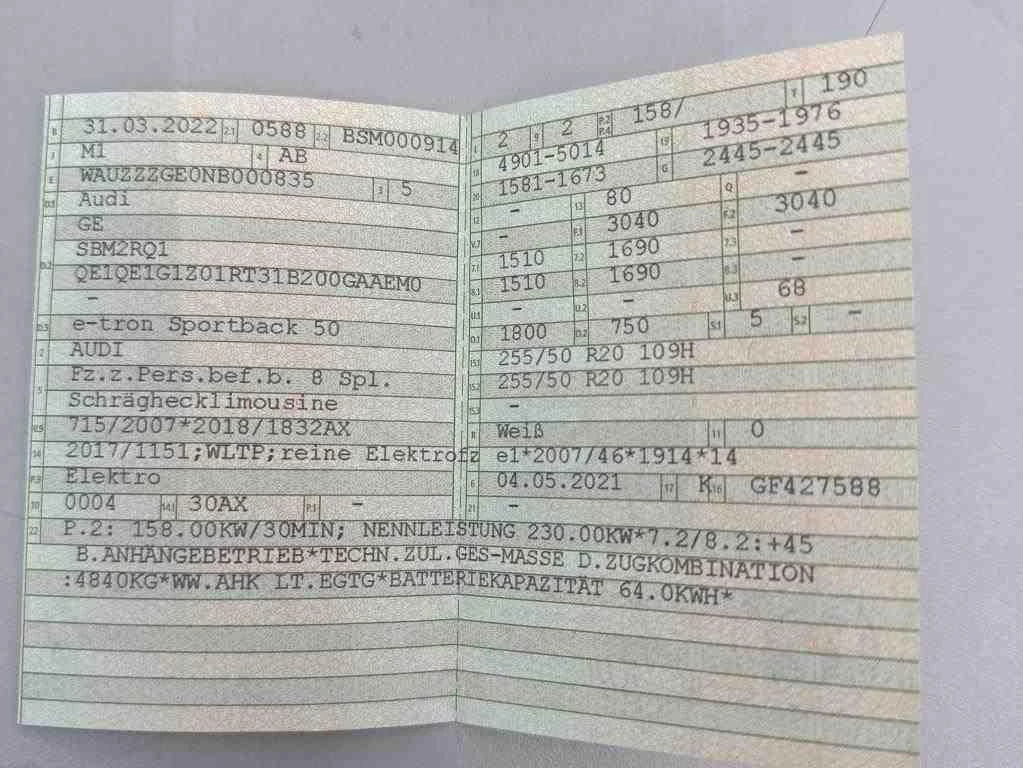 B 31.03.2022 2.1 0588 2.2 BSM000914
J M1 4 AB
E WAUZZZGE0NB000835 3 5
D.1 Audi
GE
D.2 SBM2RQ1
QE1QE1G1Z01RT31B200GAAEM0
-
D.3 e-tron Sportback 50
2 AUDI
5 Fz.z.Pers.bef.b. 8 Spl.
Schräghecklimousine
V.9 715/2007*2018/1832AX
14 2017/1151;WLTP;reine Elektrofz
P.3 Elektro
10 0004 14.1 30AX P.1 -
22 P.2: 158.00KW/30MIN; NENNLEISTUNG 230.00KW*7.2/8.2:+45
B.ANHÄNGEBETRIEB*TECHN.ZUL.GES-MASSE D.ZUGKOMBINATION
:4840KG*WW.AHK LT.EGTG*BATTERIEKAPAZITÄT 64.0KWH*
L 2 9 2 P.2 P.4 158/ T 190
18 4901-5014 19 1935-1976
20 1581-1673 G 2445-2445
12 - 13 80 Q -
V.7 - F.1 3040 F.2 3040
7.1 1510 7.2 1690 7.3 -
8.1 1510 8.2 1690 8.3 -
U.1 - U.2 - U.3 68
O.1 1800 O.2 750 S.1 5 S.2 -
15.1 255/50 R20 109H
15.2 255/50 R20 109H
15.3 -
R Weiß 11 0
e1*2007/46*1914*14
6 04.05.2021 17 K 16 GF427588
21 -